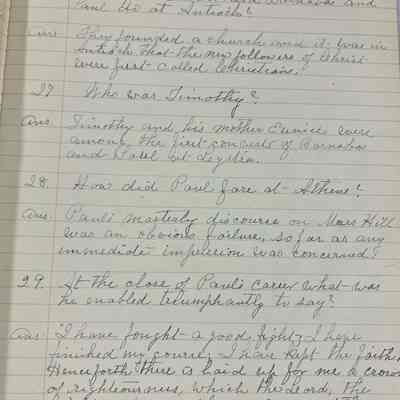 Paul do at Antioch?
Ans. They founded a church and it was in
Antioch that the new followers of Christ
were first called Christians.
27. Who was Timothy?
Ans. Timothy and his mother Eunice were
among the first converts of Barnabas
and Paul at Lystra.
28. How did Paul fare at Athens?
Ans. Paul's masterly discourse on Mars Hill
was an obvious failure, so far as any
immediate impression was concerned.
29. At the close of Paul's career what was
he enabled triumphantly to say?
Ans. "I have fought a good fight, I have
finished my course, I have kept the faith,
Henceforth there is laid up for me a crown
of righteousness, which the Lord, the